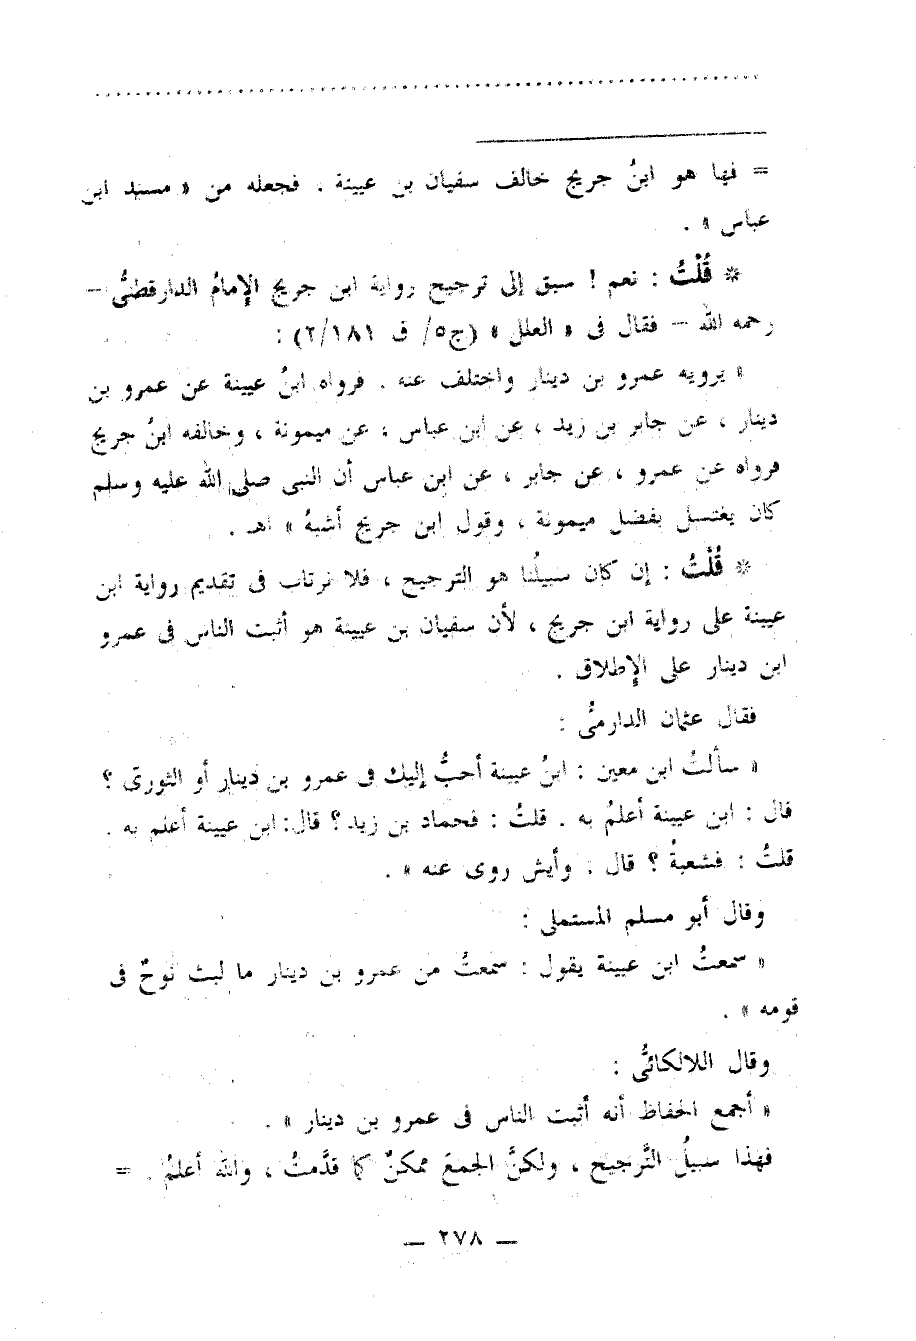 = فها هو ابنُ جريج خالف سفيان بن عيينة ، فجعله من « مسند ابن
عباس » .
* قُلْتُ : نعم ! سبق إلى ترجيح رواية ابن جريج الإمامُ الدارقطنىُّ –
رحمه الله – فقال فى « العلل » (ج٥/ ق ٢/١٨١) :
« يرويه عمرو بن دينار واختلف عنه . فرواه ابنُ عيينة عن عمرو بن
دينار ، عن جابر بن زيد ، عن ابن عباس ، عن ميمونة ، وخالفه ابنُ جريج
فرواه عن عمرو ، عن جابر ، عن ابن عباس أن النبى صلى الله عليه وسلم
كان يغتسل بفضل ميمونة ، وقول ابن جريج أشبهُ » اهـ .
* قُلْتُ : إن كان سبيلُنا هو الترجيح ، فلا نرتاب فى تقديم رواية ابن
عيينة على رواية ابن جريج ، لأن سفيان بن عيينة هو أثبت الناس فى عمرو
ابن دينار على الإطلاق .
فقال عثمان الدارمىُّ :
« سألتُ ابن معين : ابنُ عيينة أحبُّ إليك فى عمرو بن دينار أو الثورى ؟
قال : ابن عيينة أعلمُ به . قلتُ : فحماد بن زيد ؟ قال: ابن عيينة أعلم به .
قلتُ : فشعبةُ ؟ قال : وأيش روى عنه » .
وقال أبو مسلم المستملى :
« سمعتُ ابن عيينة يقول : سمعتُ من عمرو بن دينار ما لبث نُوحٌ فى
قومه » .
وقال اللالكائىُّ :
« أجمع الحفاظ أنه أثبت الناس فى عمرو بن دينار » .
فهذا سبيلُ التَّرجيح ، ولكنَّ الجمعَ ممكنٌ كما قدَّمتُ ، والله أعلمُ . =
— ٢٧٨ —